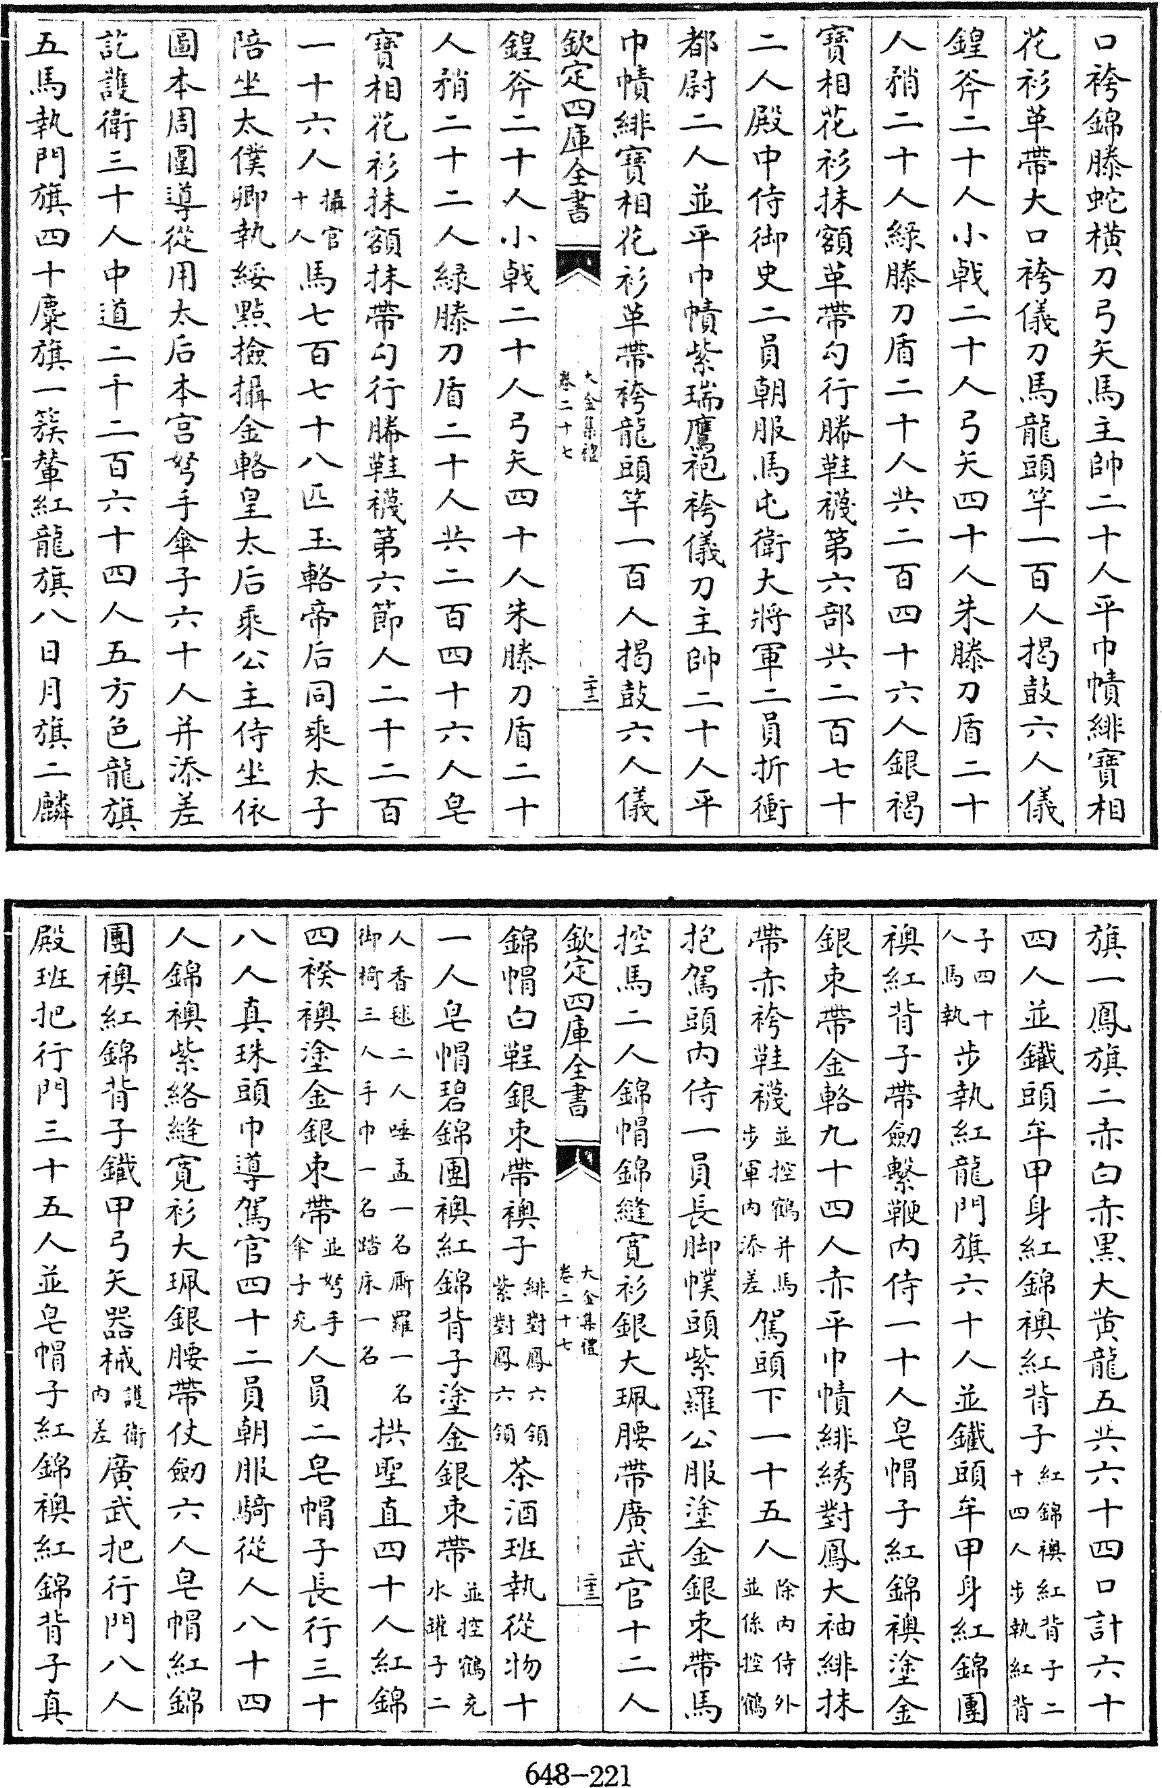 口袴錦縢蛇橫刀弓矢馬主帥二十人平巾幘緋寶相
花衫革帶大口袴儀刀馬龍頭竿一百人揭鼓六人儀
鍠斧二十人小戟二十人弓矢四十人朱縢刀盾二十
人矟二十人綠縢刀盾二十人共二百四十六人銀褐
寶相花衫抹額革帶勾行縢鞋襪第六部共二百七十
二人殿中侍御史二員朝服馬屯衛大將軍二員折衝
都尉二人並平巾幘紫瑞鷹袍袴儀刀主帥二十人平
巾幘緋寶相花衫革帶袴龍頭竿一百人揭鼓六人儀
欽定四庫全書
大金集禮
卷二十七
二十三
鍠斧二十人小戟二十人弓矢四十人朱縢刀盾二十
人矟二十二人綠縢刀盾二十人共二百四十六人皂
寶相花衫抹額抹帶勾行縢鞋襪第六節人二十二百
一十六人攝官十人馬七百七十八匹玉輅帝后同乘太子
陪坐太僕卿執綏點撿攝金輅皇太后乘公主侍坐依
圖本周圍導從用太后本宮弩手傘子六十人并添差
訖護衛三十人中道二千二百六十四人五方色龍旗
五馬執門旗四十麋旗一簇輦紅龍旗八日月旗二麟
旗一鳳旗二赤白赤黑大黄龍五共六十四口計六十
四人並鐵頭牟甲身紅錦襖紅背子紅錦襖紅背子二十四人步執紅背
子四十人馬執步執紅龍門旗六十人並鐵頭牟甲身紅錦團
襖紅背子帶劒繫鞭内侍一十人皂帽子紅錦襖塗金
銀束帶金輅九十四人赤平巾幘緋綉對鳳大袖緋抹
帶赤袴鞋襪並控鶴并馬步軍内添差駕頭下一十五人除内侍外並係控鶴
抱駕頭内侍一員長脚幞頭紫羅公服塗金銀束帶馬
控馬二人錦帽錦縫寛衫銀大珮腰帶廣武官十二人
欽定四庫全書
大金集禮
卷二十七
二十三
錦帽白鞓銀束帶襖子緋對鳳六領紫對鳳六領茶酒班執從物十
一人皂帽碧錦團襖紅錦背子塗金銀束帶並控鶴充水罐子二
人香毬二人唾盂一名厮羅一名御椅三人手巾一名踏床一名拱聖直四十人紅錦
四䙆襖塗金銀束帶並弩手傘子充人員二皂帽子長行三十
八人真珠頭巾導駕官四十二員朝服騎從人八十四
人錦襖紫絡縫寛衫大珮銀腰帶仗劒六人皂帽紅錦
團襖紅錦背子鐵甲弓矢器械護衛内差廣武把行門八人
殿班把行門三十五人並皂帽子紅錦襖紅錦背子真
648-221